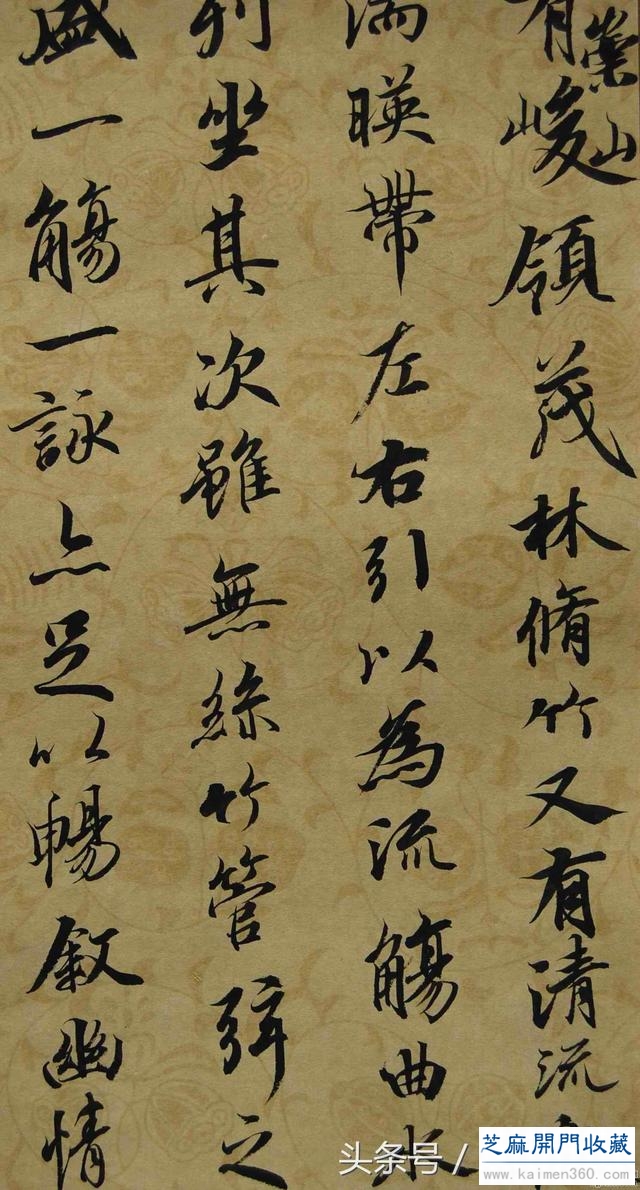 有崇山
峻領茂林脩竹又有清流
湍暎帶左右引以為流觴曲水
列坐其次雖無絲竹管弦之
盛一觴一詠亦足以暢敘幽情
头条号 /
芝麻開門收藏
www.kaimen360.com